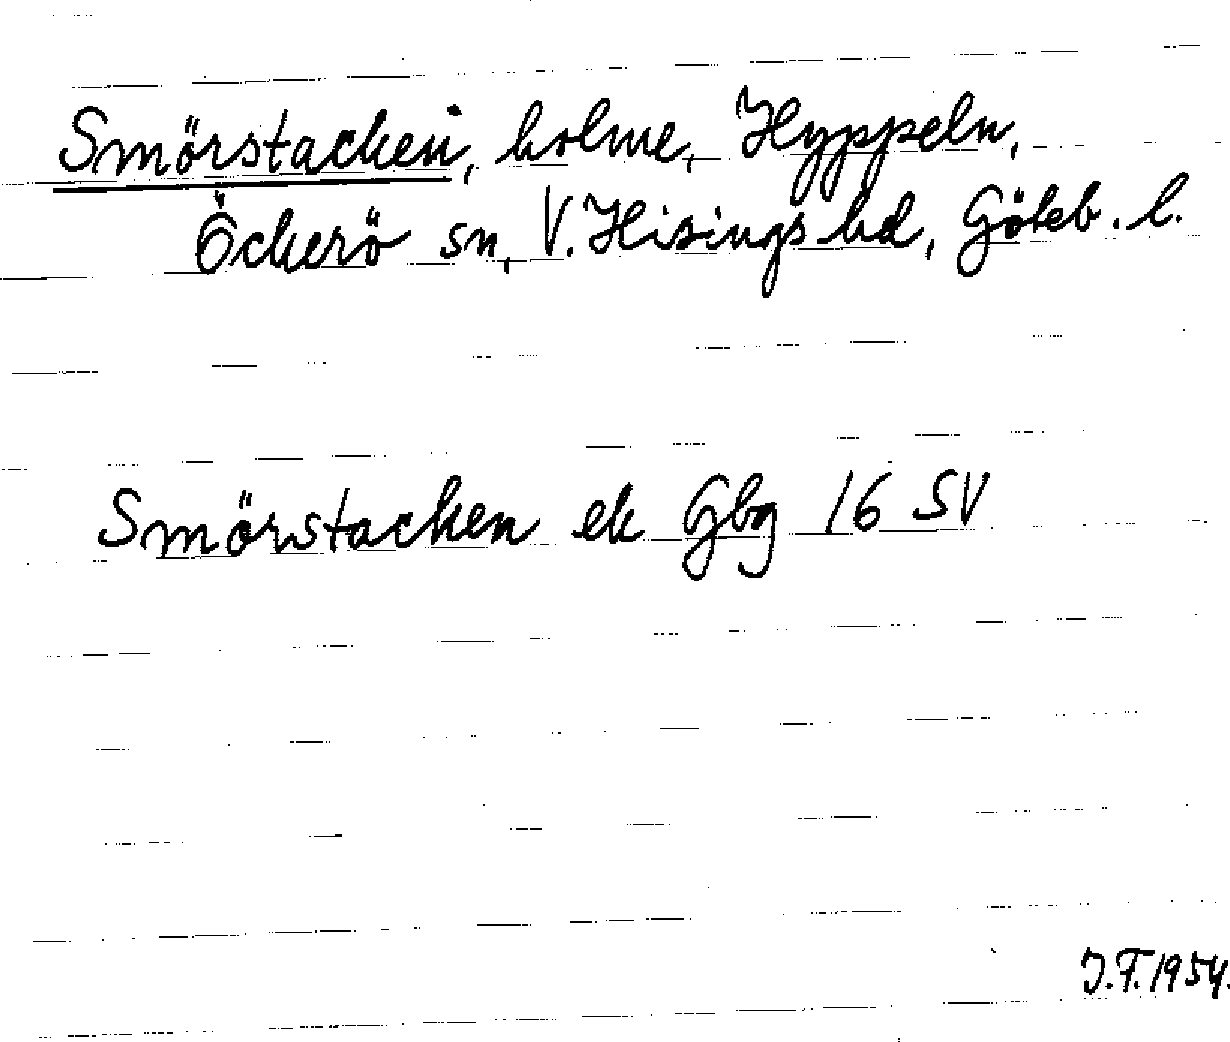 Smörstacken, holme, Hyppeln,
Öckerö sn, V. Hisings hd, Göteb. l.
Smörstacken ek Gbg 16 SV
J.F. 1954.